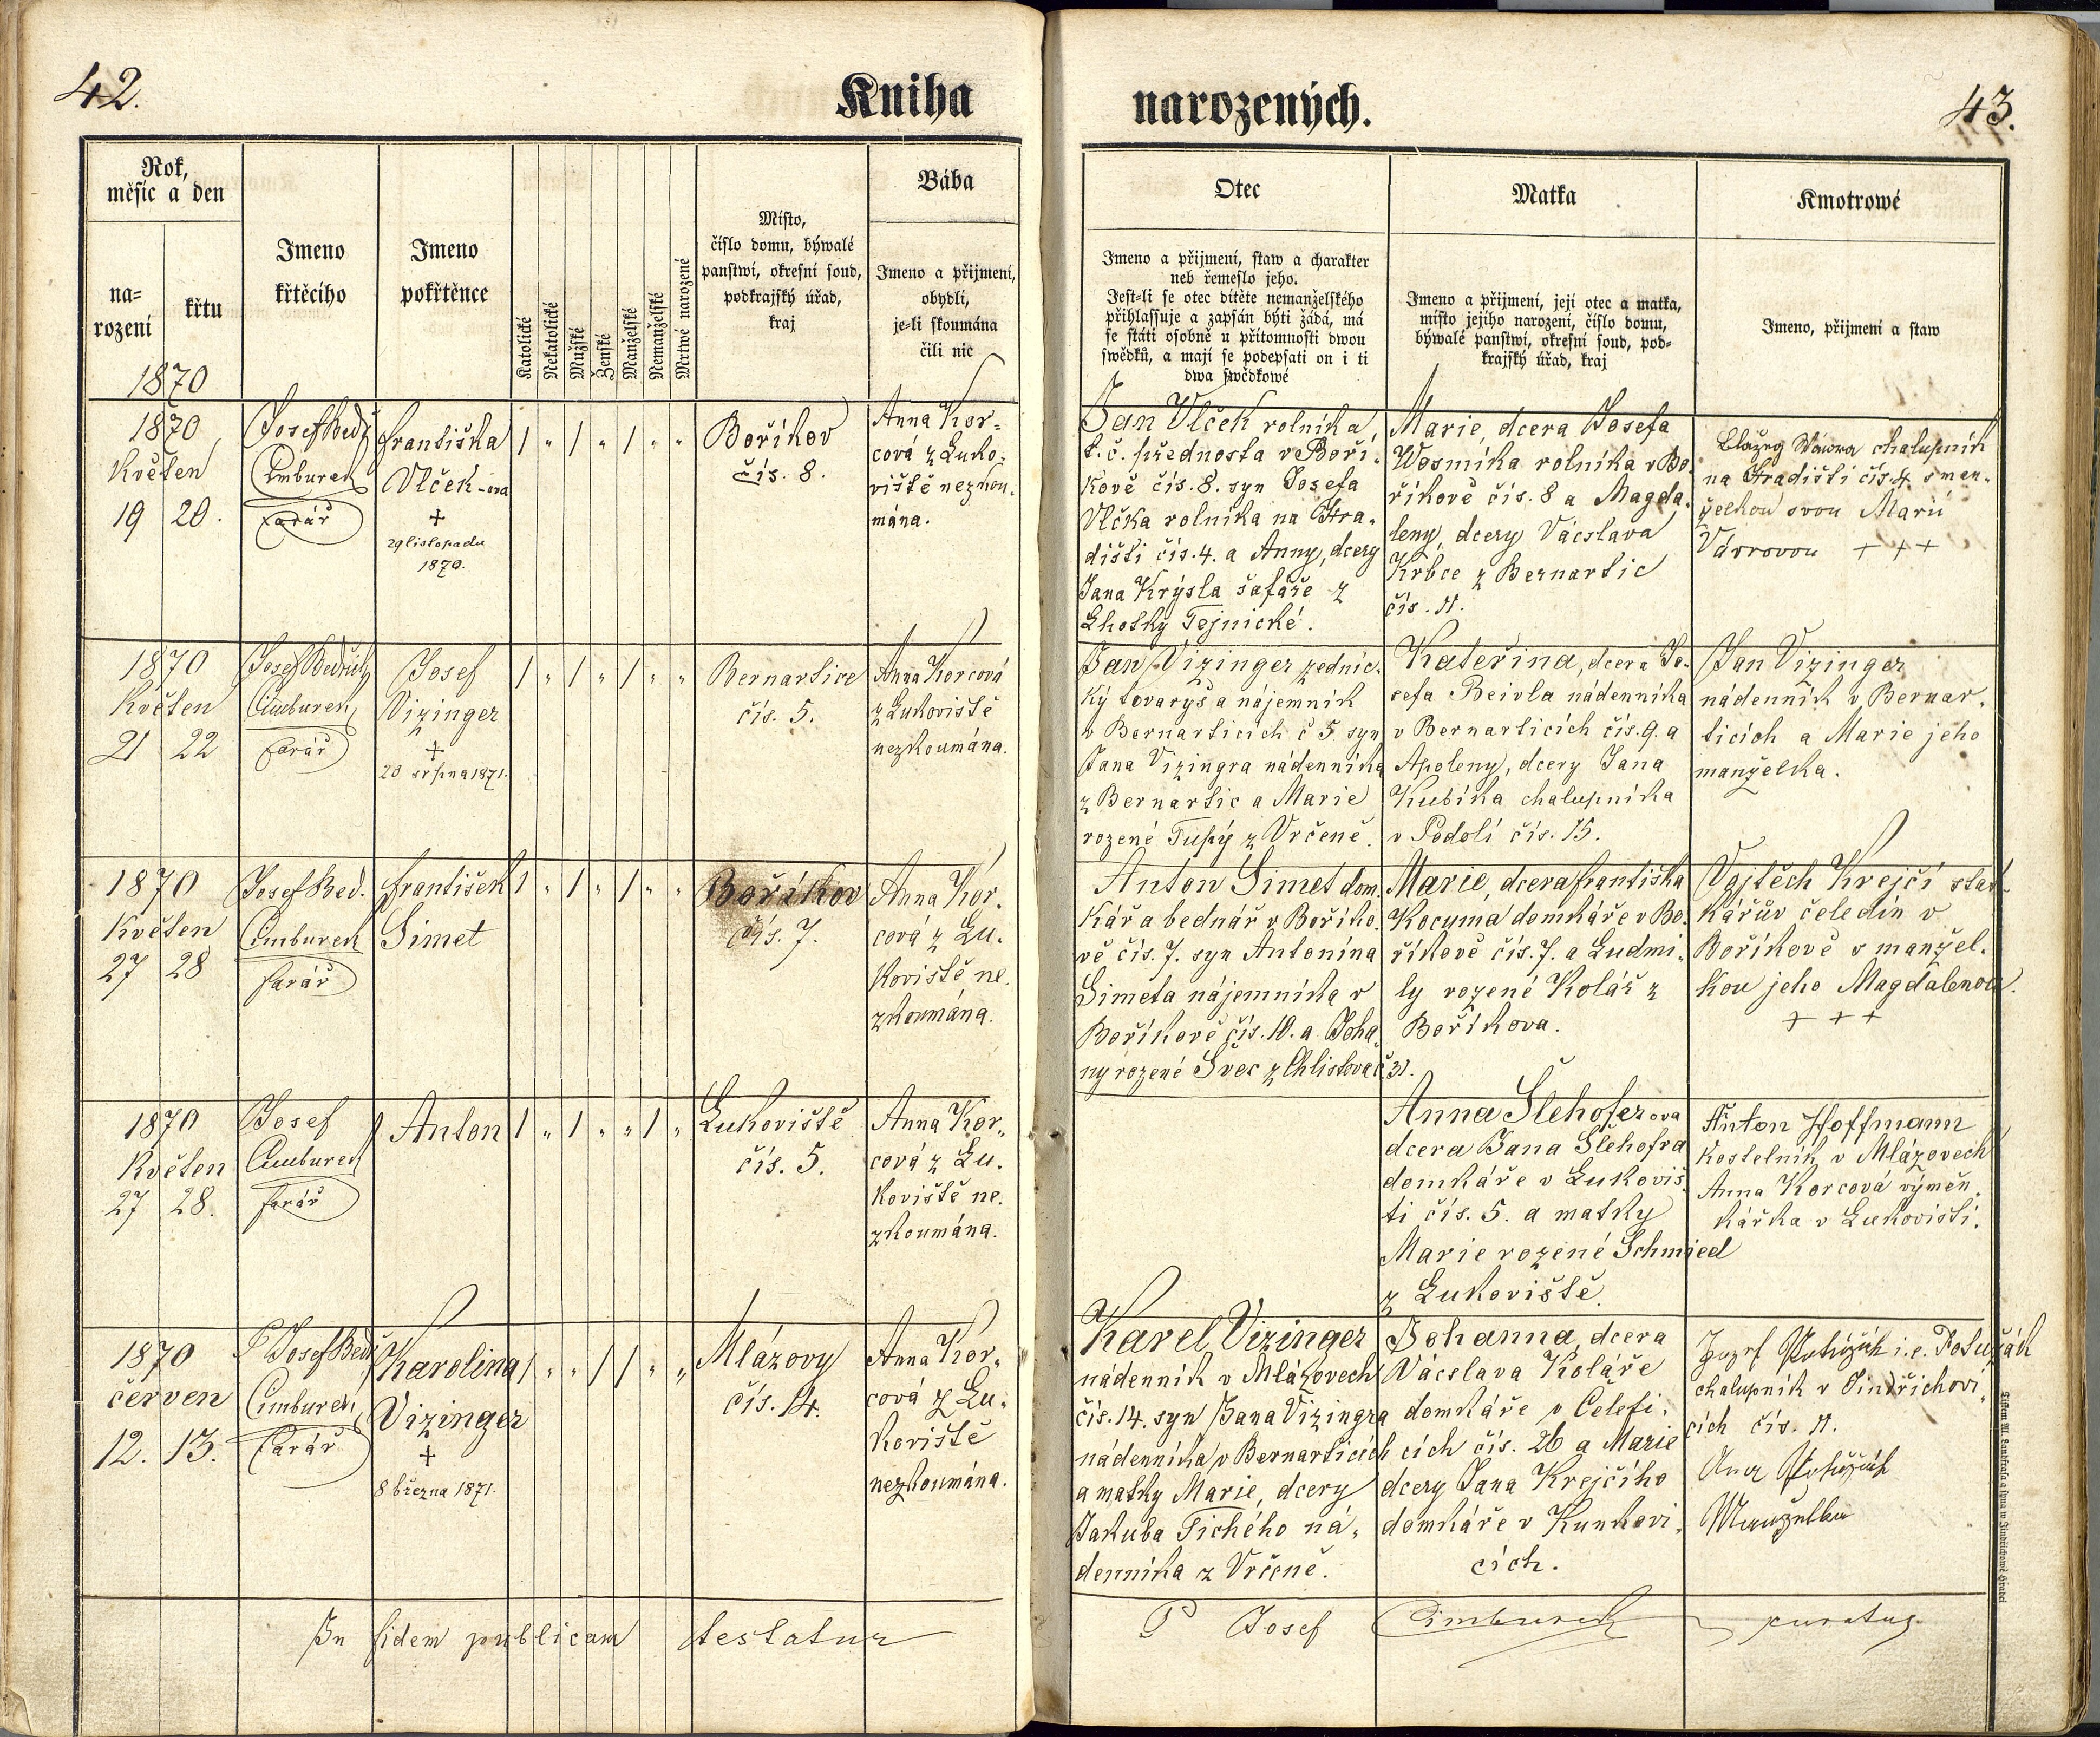 42.
Kniha
narozených.
43.
Rok,
měsíc a den
na=
rození
křtu
1870
Jmeno
křtěcího
Jmeno
pokřtěnce
Katolické
Nekatolické
Mužské
Ženské
Manželské
Nemanželské
Mrtwé narozené
Místo,
číslo domu, býwalé
panstwí, okresní soud,
podkrajský úřad,
kraj
Bába
Jmeno a přijmení,
obydlí,
je=li skoumána
čili nic
Otec
Jmeno a přijmení, staw a charakter
neb řemeslo jeho.
Jest=li se otec dítěte nemanželského
přihlassuje a zapsán býti žádá, má
se státi osobně u přítomnosti dwou
swědků, a mají se podepsati on i ti
dwa swědkowé
Matka
Jmeno a přijmení, její otec a matka,
místo jejího narození, číslo domu,
býwalé panstwí, okresní soud, pod=
krajský úřad, kraj
Kmotrowé
Jmeno, přijmení a staw
1870
Květen
19 20.
Josef Bedř
Cimburek
farář
Františka
Vlček-ova
+
29 listopadu
1870.
1 " 1 " 1 " "
Boříkov
čís. 8.
Anna Kor=
cová z Luko-
viště nezkou-
mána.
Jan Vlček rolník a
t. č. přednosta v Boří-
kově čís. 8. syn Josefa
Vlčka rolníka na Hra-
dišti čís. 4. a Anny, dcery
Jana Krýsla šafáře z
Lhotky Tejnické.
Marie, dcera Josefa
Wosmíka rolníka v Bo-
říkově čís. 8 a Magda-
leny, dcery Václava
Krbce z Bernartic
čís. 11.
Blažej Wávra chalupník
na Hradišti čís. 4. s man-
želkou svou Marií
Vávrovou + + +
1870
Květen
21 22
Josef Bedřich
Cimburek
farář
Josef
Vizinger
+
20 srpna 1871.
1 " 1 " 1 " "
Bernartice
čís. 5.
Anna Korcová
z Lukoviště
nezkoumána.
Jan Vizinger zednic-
ký tovaryš a nájemník
v Bernarticích č 5. syn
Jana Vizingra nádenníka
z Bernartic a Marie
rozené Tupý z Vrčeně.
Kateřina, dcera Jo-
sefa Beivla nádenníka
v Bernarticích čís. 9. a
Apoleny, dcery Jana
Kubíka chalupníka
v Podolí čís. 15.
Jan Vizinger
nádenník v Bernar-
ticích a Marie jeho
manželka.
1870
Květen
27 28
Josef Bed.
Cimburek
farář
František
Simet
1 " 1 " 1 " "
Boříkov
čís. 7.
Anna Kor-
cová z Lu-
koviště ne-
zkoumána.
Anton Simet dom-
kář a bednář v Boříko-
vě čís. 7. syn Antonína
Simeta nájemníka v
Boříkově čís. 10. a Joha-
ny rozené Švec z Chlistova č. 31.
Marie, dcera Františka
Kocyma domkáře v Bo-
říkově čís. 7. a Ludmi-
ly rozené Kolář z
Boříkova.
Vojtěch Krejčí stat-
kářův čeledín v
Boříkově s manžel-
kou jeho Magdalenou.
+ + +
1870
Květen
27 28.
Josef
Cimburek
farář
Anton
1 " 1 " " 1 "
Lukoviště
čís. 5.
Anna Kor-
cová z Lu-
koviště ne-
zkoumána.
Anna Šlehoferova
dcera Jana Šlehofra
domkáře v Lukoviš-
ti čís. 5. a matky
Marie rozené Schmied
z Lukoviště.
Anton Hoffmann
Kostelník v Mlázovech
Anna Korcová výměn-
kářka v Lukovišti.
1870
červen
12. 13.
P Josef Bedř
Cimburek
farář
Karolina
Vizinger
+
8 března 1871.
1 " " 1 1 " "
Mlázovy
čís. 14.
Anna Kor-
cová z Lu-
koviště
nezkoumána.
Karel Vizinger
nádenník v Mlázovech
čís. 14. syn Jana Vizingra
nádenníka v Bernarticích
a matky Marie, dcery
Jakuba Tichého ná-
denníka z Vrčeně.
Johanna, dcera
Václava Koláře
domkáře v Čeleti-
cích čís. 26 a Marie
dcery Jana Krejčího
domkáře v Kunkovi-
cích.
Jozef Potužák i.e. Potužák
chalupník v Jindřichovi-
cích čís. 11.
Potužák
Manželka
In fidem publicam testatur
P Josef Cimburek curatus